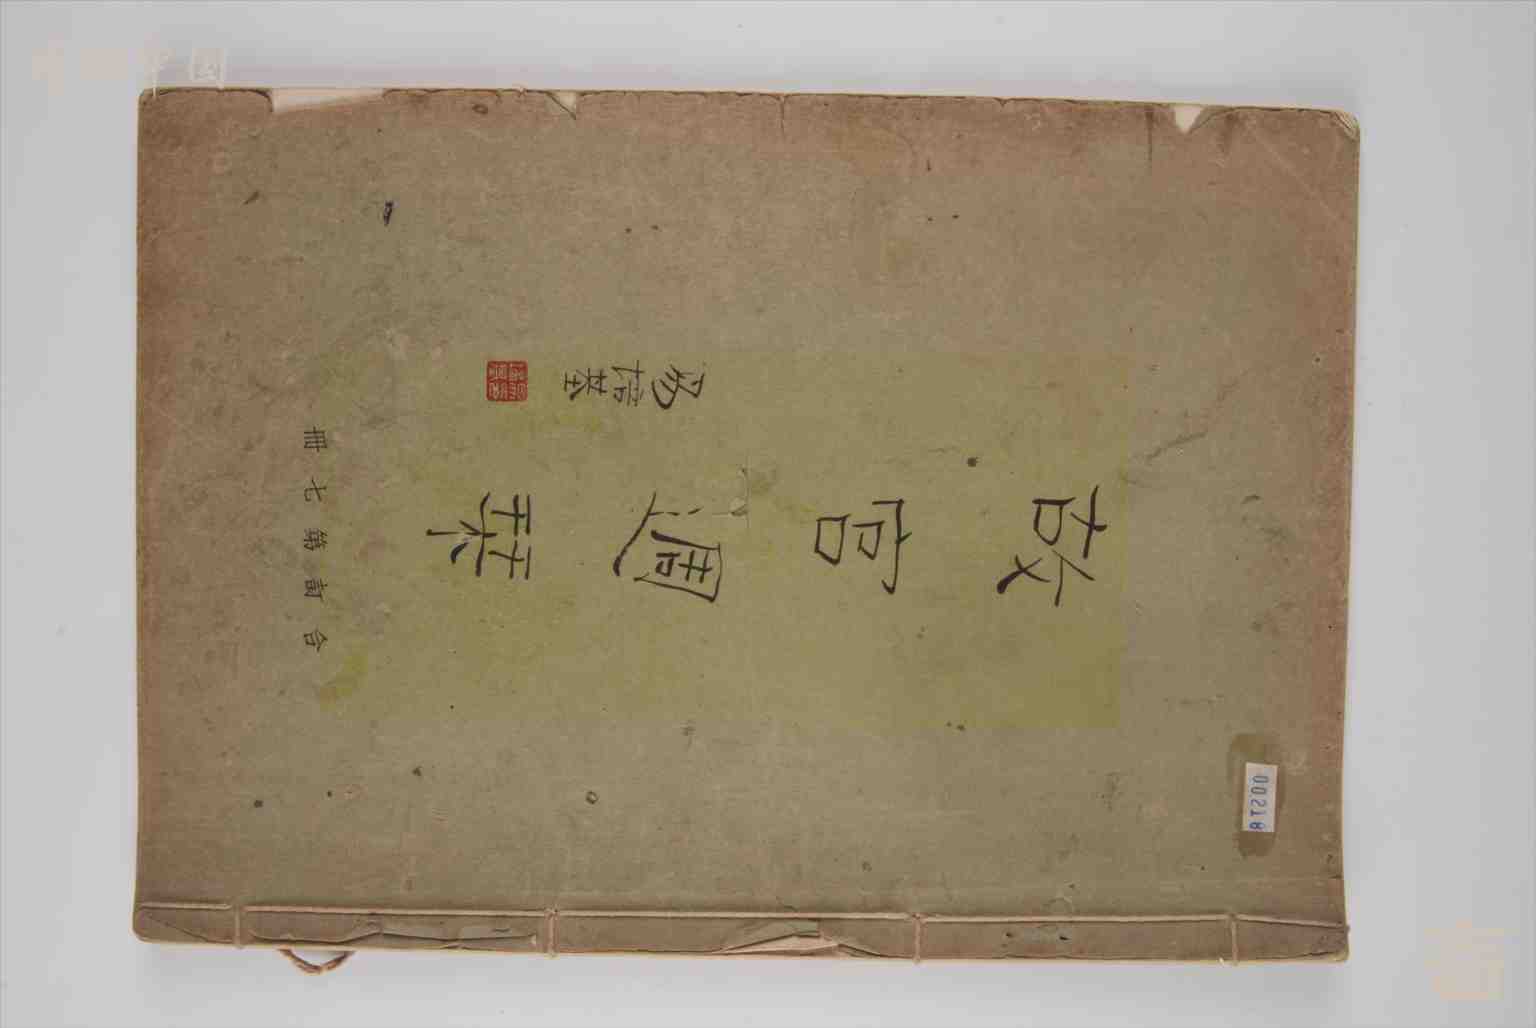 故宫週刊
易培基
合訂第七冊
00218